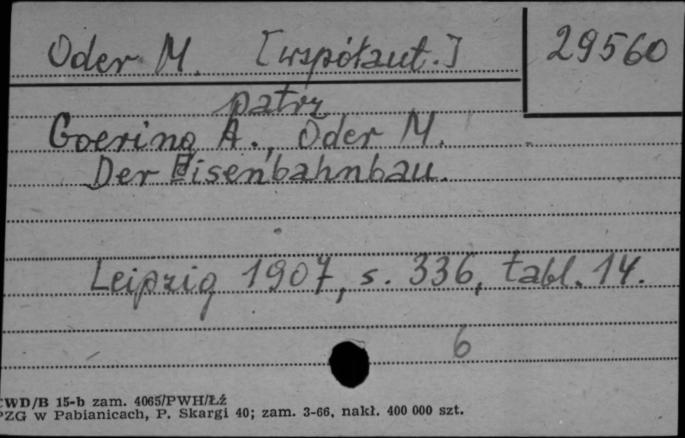 Oder M. [współaut.] 29560
patrz
Goering A., Oder M.
Der Eisenbahnbau.
Leipzig 1907, s. 336, tabl. 14.
6
CWD/B 15-b zam. 4065/PWH/Łź
PZG w Pabianicach, P. Skargi 40; zam. 3-66, nakł. 400 000 szt.